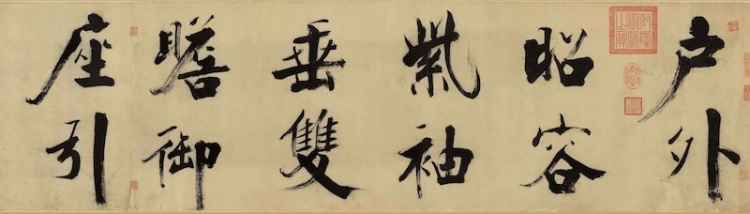 户外
昭容
紫袖
垂雙
瞻御
座引